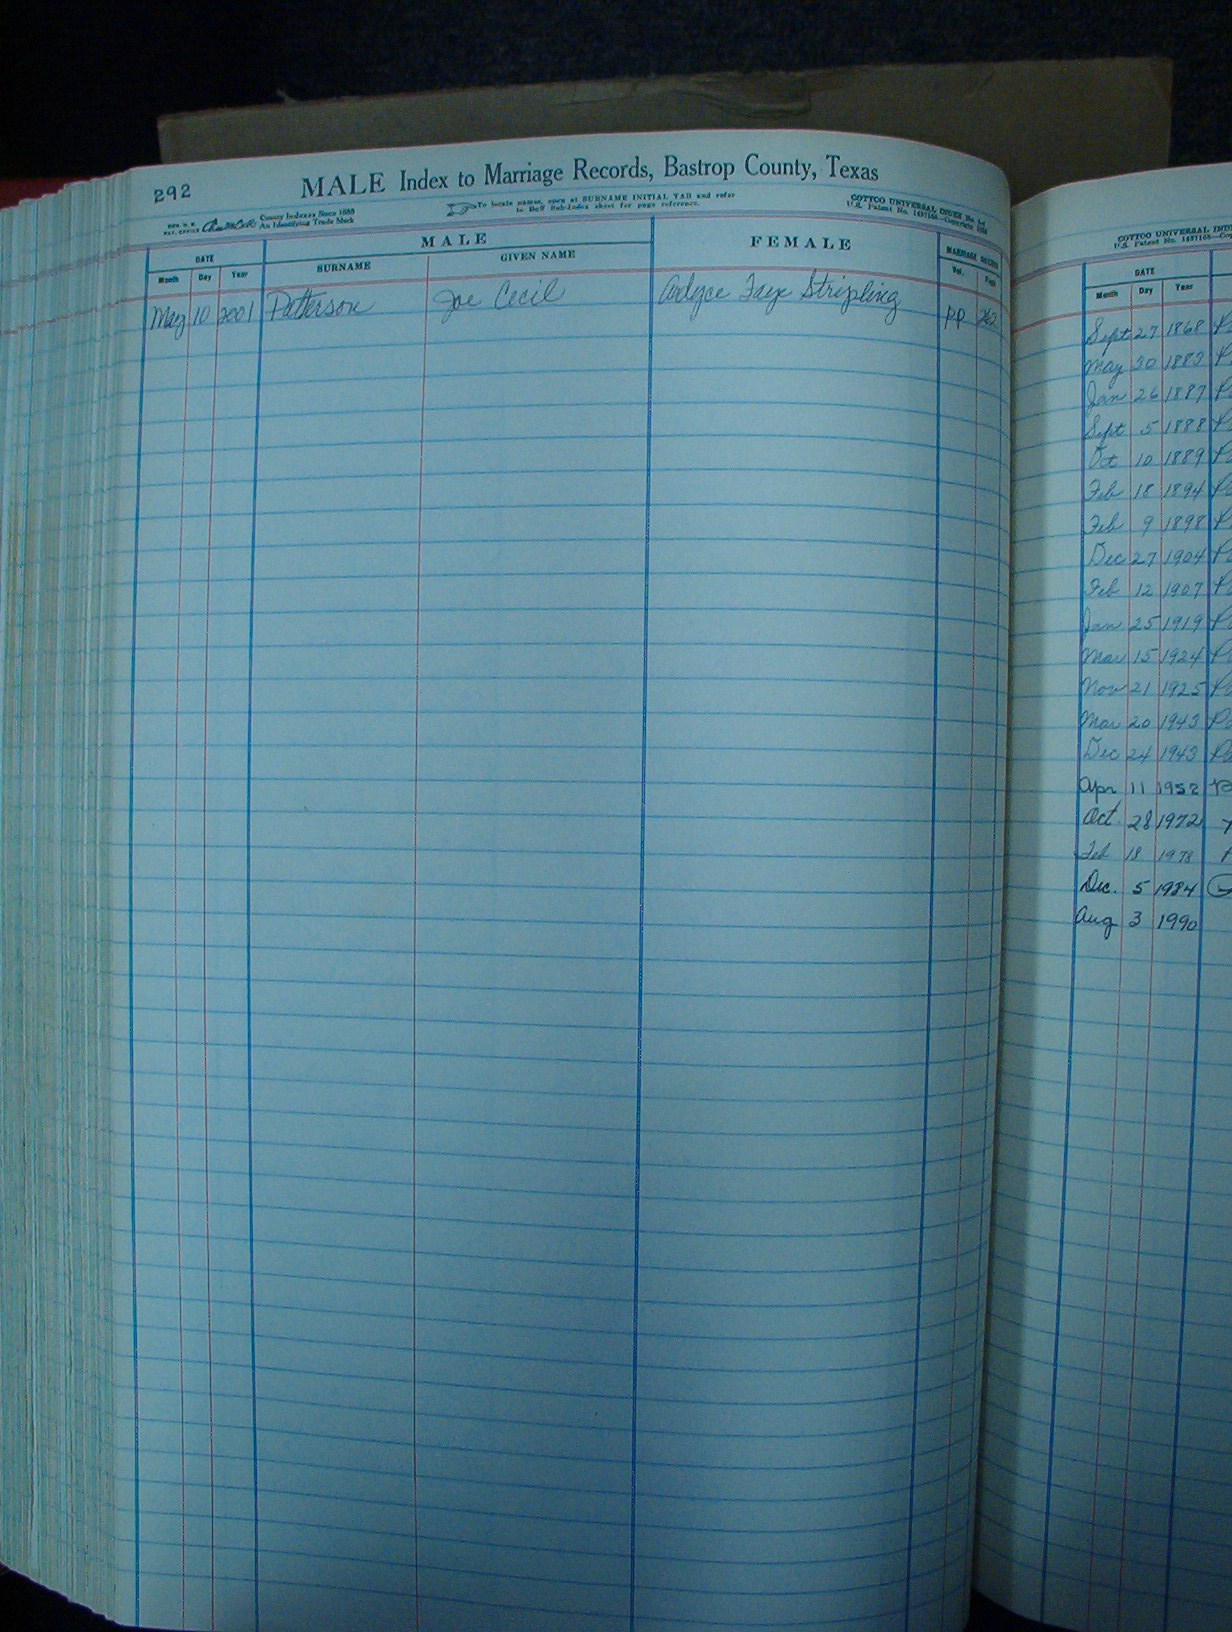 292
MALE Index to Marriage Records, Bastrop County, Texas
REG. U. S. PAT. OFFICE
County Indexes Since 1888
An Identifying Trade Mark
To locate names, open at SURNAME INITIAL TAB and refer
to Buff Sub-Index sheet for page reference.
COTTCO UNIVERSAL INDEX
U.S. Patent No. Copyright
DATE MALE FEMALE MARRIAGE RECORD
Month Day Year SURNAME GIVEN NAME Vol. Page
May 10 2001 Patterson Joe Cecil Ardyce Faye Stripling PP 262
COTTCO UNIVERSAL IND
U.S. Patent No.
DATE
Month Day Year
Sept 27 1868 P
May 30 1883 P
Jan 26 1887 P
Sept 5 1888 P
Oct 10 1889 P
Feb 18 1894 P
Feb 9 1898 P
Dec 27 1904 P
Feb 12 1907 P
Jan 25 1919 P
Mar 15 1924 P
Nov 21 1925 P
Mar 20 1943 P
Dec 24 1943 Pa
Apr 11 1952
Oct 28 1972
Feb 18 1978
Dec. 5 1984
Aug 3 1990